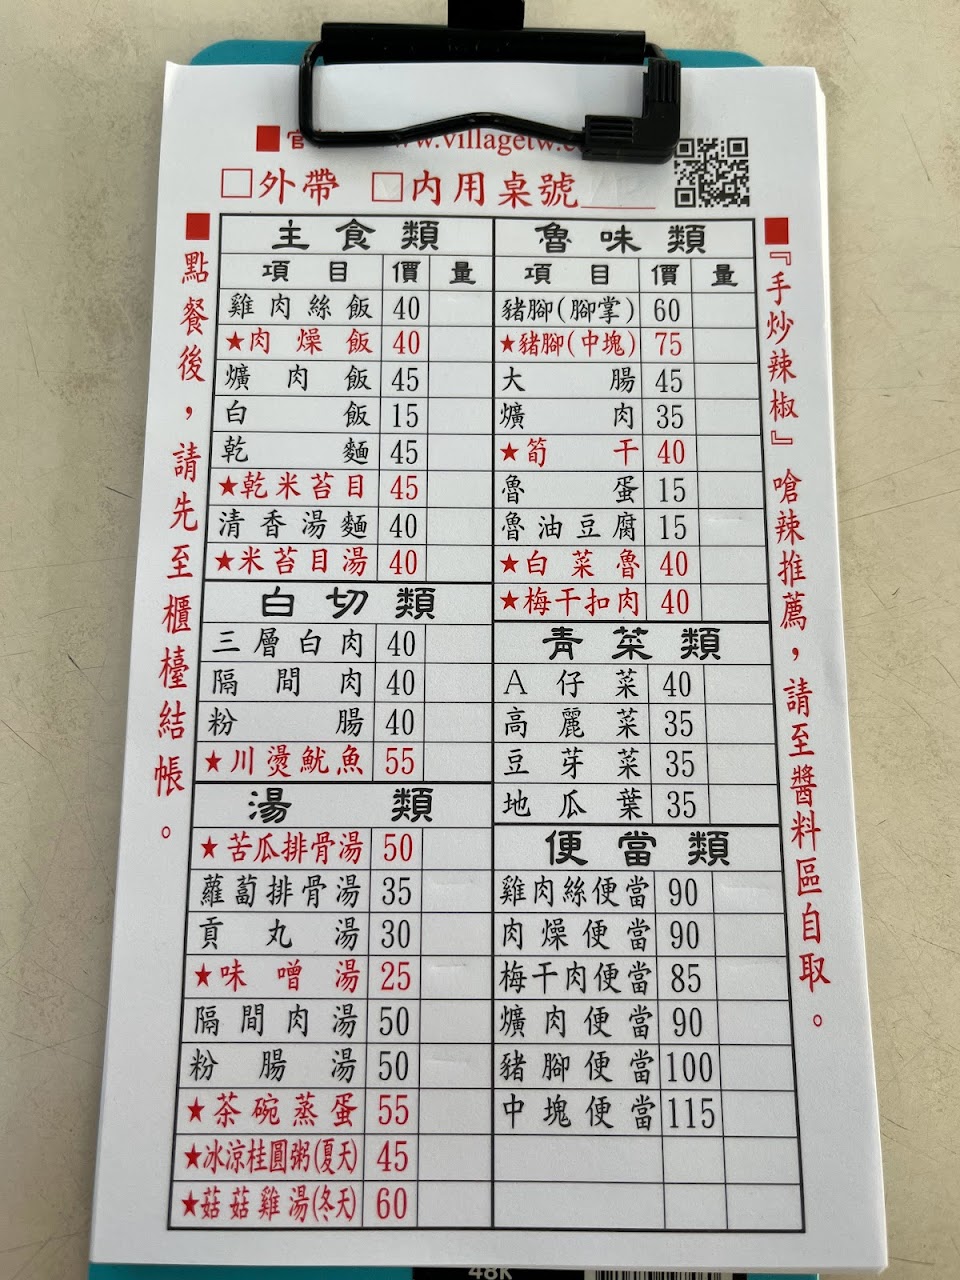 ■官 www.villagetw.c
□外帶 □內用桌號____
■點餐後，請先至櫃檯結帳。
主食類
項目 價 量
雞肉絲飯 40
★肉燥飯 40
爌肉飯 45
白飯 15
乾麵 45
★乾米苔目 45
清香湯麵 40
★米苔目湯 40
白切類
三層白肉 40
隔間肉 40
粉腸 40
★川燙魷魚 55
湯類
★苦瓜排骨湯 50
蘿蔔排骨湯 35
貢丸湯 30
★味噌湯 25
隔間肉湯 50
粉腸湯 50
★茶碗蒸蛋 55
★冰涼桂圓粥(夏天) 45
★菇菇雞湯(冬天) 60
魯味類
項目 價 量
豬腳(腳掌) 60
★豬腳(中塊) 75
大腸 45
爌肉 35
★筍干 40
魯蛋 15
魯油豆腐 15
★白菜魯 40
★梅干扣肉 40
青菜類
A仔菜 40
高麗菜 35
豆芽菜 35
地瓜葉 35
便當類
雞肉絲便當 90
肉燥便當 90
梅干肉便當 85
爌肉便當 90
豬腳便當 100
中塊便當 115
■『手炒辣椒』嗆辣推薦，請至醬料區自取。
48K